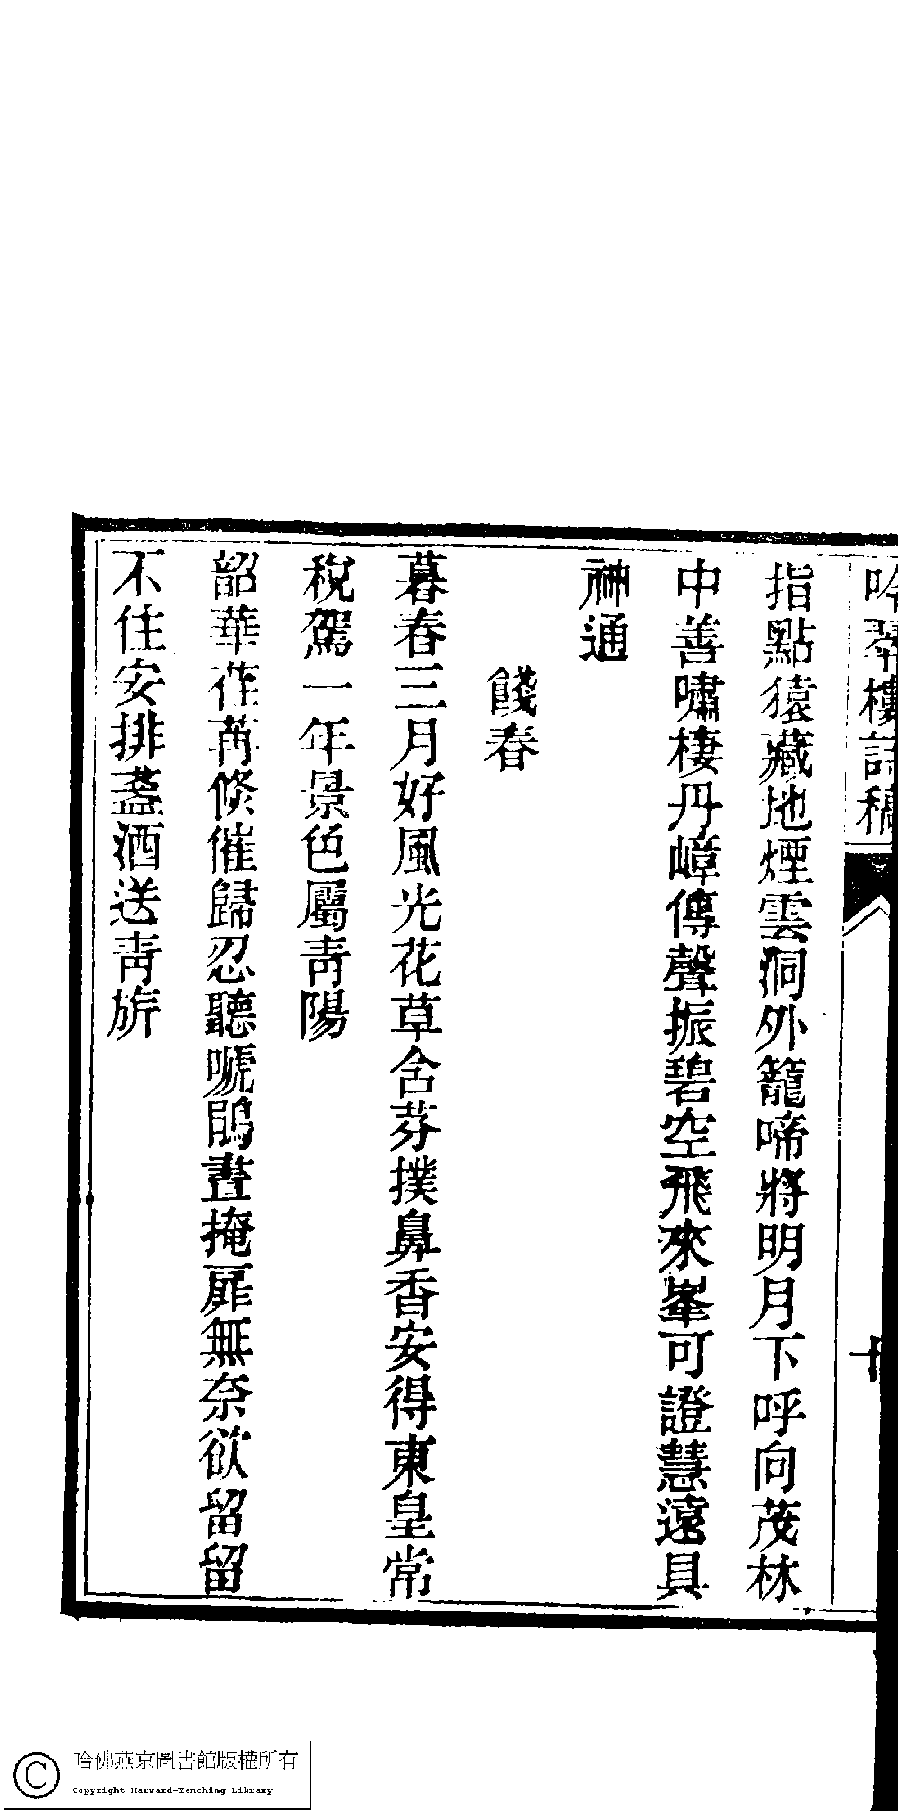 吟琴樓詩稿
指點猿藏地煙雲洞外籠啼將明月下呼向茂林
中善嘯棲丹嶂傳聲振碧空飛來峯可證慧遠具
神通
餞春
暮春三月好風光花草含芬撲鼻香安得東皇常
稅駕一年景色屬青陽
韶華荏苒倏催歸忍聽嗁鵑晝掩扉無奈欲留留
不住安排盞酒送青旂
哈佛燕京圖書館版權所有
Copyright Harvard-Yenching Library